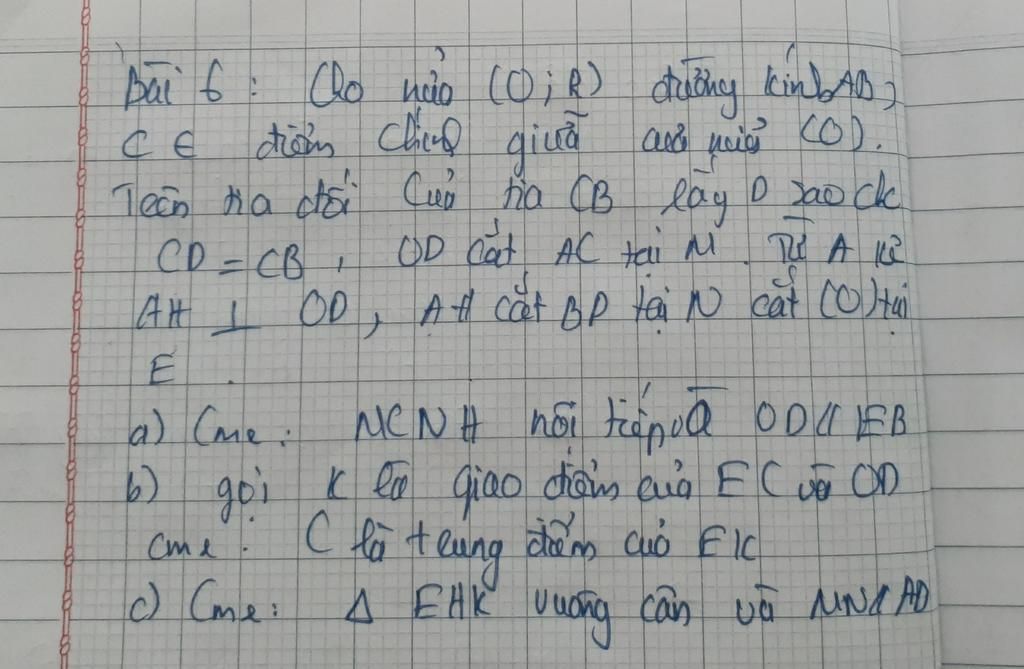 Bài 6 : Cho nửa (O; R) đường kính AB,
C ∈ điểm chính giữa của nửa (O).
Trên tia đối của tia CB lấy D sao cho
CD = CB , OD cắt AC tại M . Từ A kẻ
AH ⊥ OD , AH cắt BD tại N cắt (O) tại
E .
a) Cmr : MCNH nội tiếp và OD // EB
b) gọi K là giao điểm của EC và OD
cmr : C là trung điểm của EK
c) Cmr : Δ EHK vuông cân và MN // AD